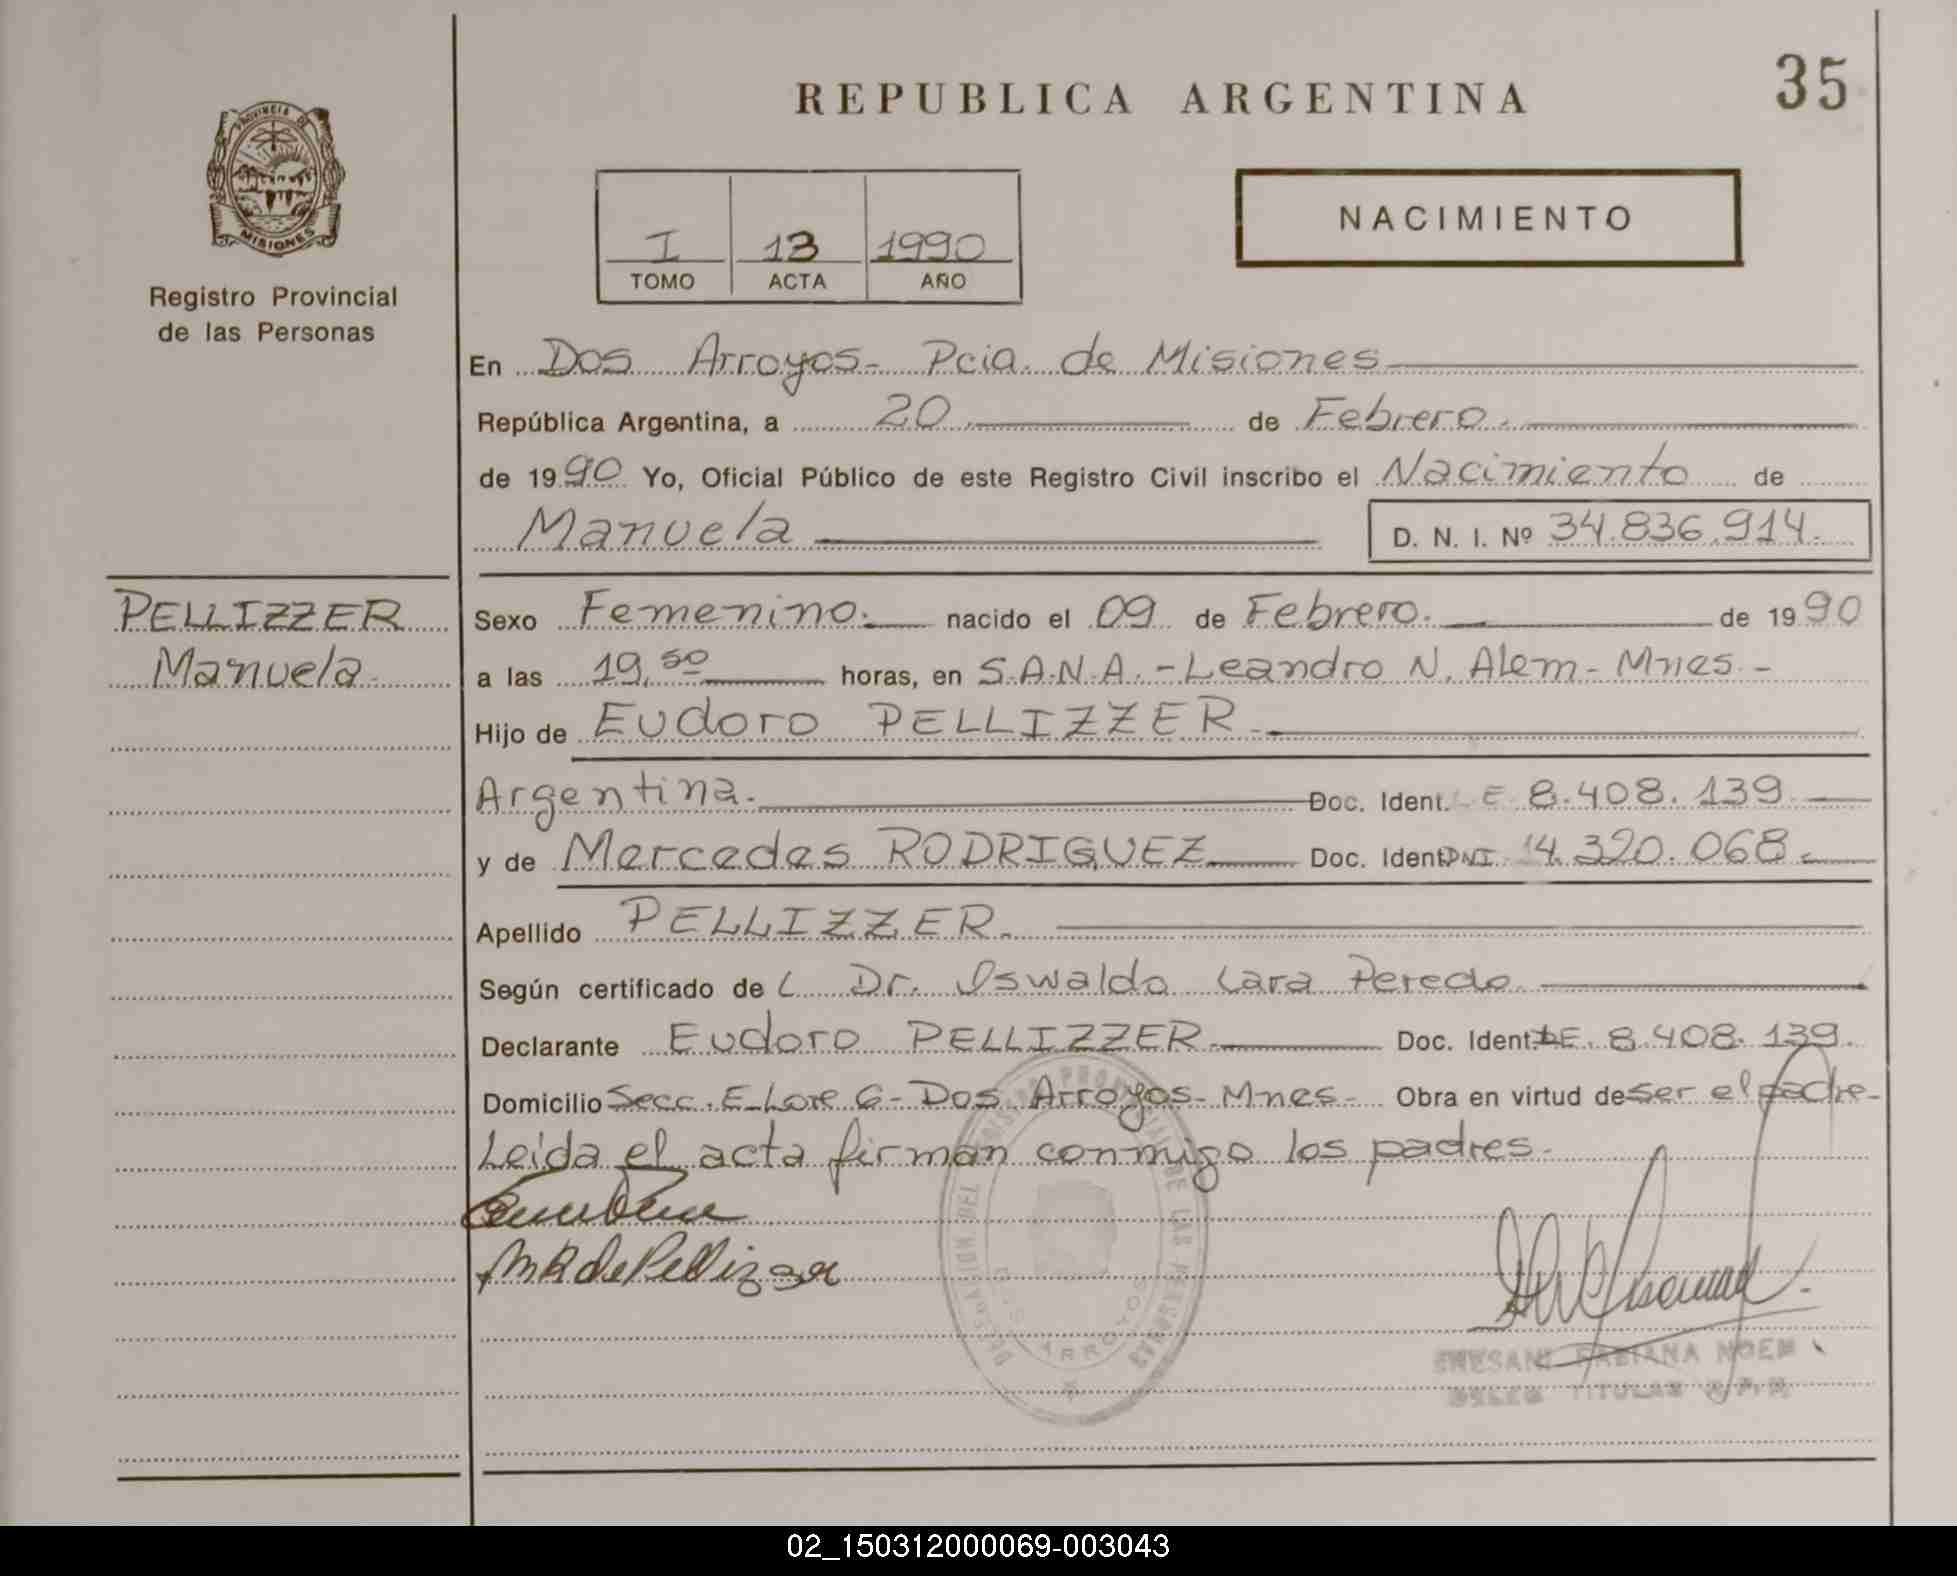 REPUBLICA ARGENTINA
35
PROVINCIA DE
MISIONES
Registro Provincial
de las Personas
I 13 1990
TOMO ACTA AÑO
NACIMIENTO
En Dos Arroyos- Pcia. de Misiones
República Argentina, a 20 de Febrero.
de 1990 Yo, Oficial Público de este Registro Civil inscribo el Nacimiento de
Manuela D. N. I. Nº 34.836.914.
PELLIZZER
Manuela
Sexo Femenino. nacido el 09 de Febrero. de 1990
a las 19,50 horas, en S.A.N.A. - Leandro N. Alem - Mnes -
Hijo de Eudoro PELLIZZER
Argentina. Doc. Ident. L.E. 8.408.139
y de Mercedes RODRIGUEZ Doc. Ident DNI 14.320.068.
Apellido PELLIZZER.
Según certificado de L Dr. Oswaldo Lara Peredo
Declarante Eudoro PELLIZZER Doc. Ident. LE. 8.408.139.
Domicilio Secc. E-Lote 6- Dos Arroyos- Mnes- Obra en virtud de ser el padre-
Leída el acta firman conmigo los padres.
M R de Pellizzer
DELEGACION DEL REGISTRO PROVINCIAL DE LAS PERSONAS
DOS ARROYOS
FABIANA NOEMI
DELEG TITULAR R.P.P.
02_150312000069-003043